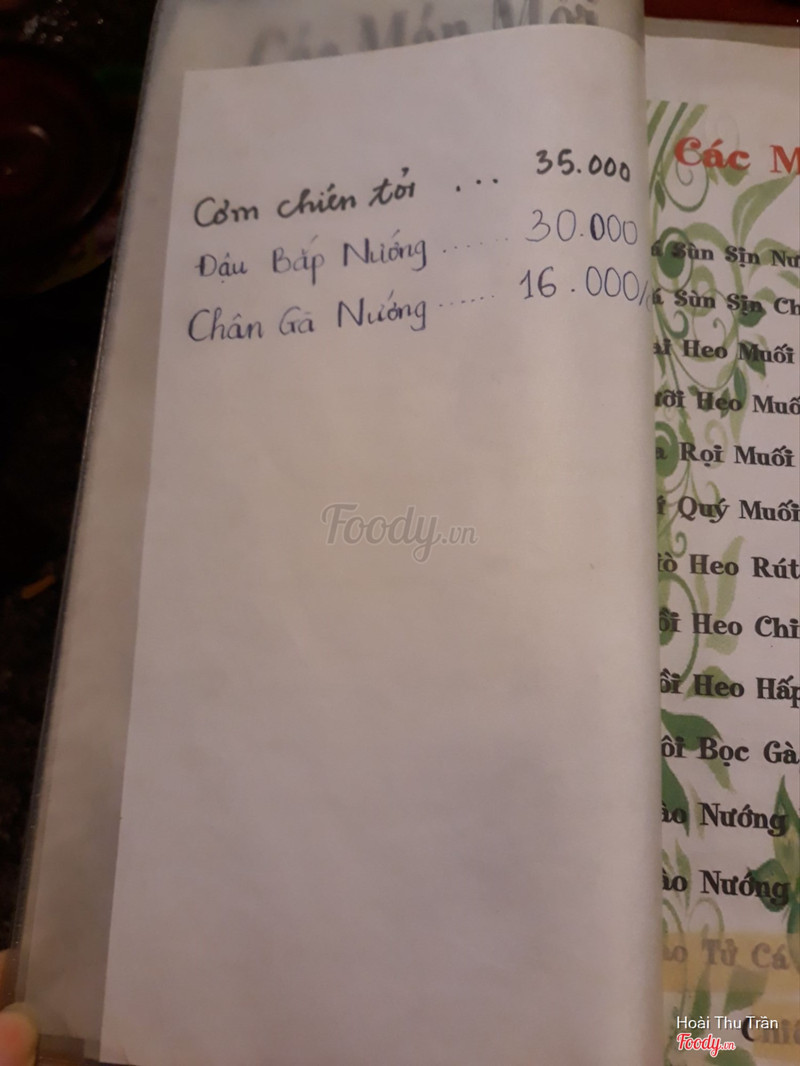 Các Món Mới
Cơm chiên tỏi ... 35.000
Đậu Bắp Nướng ........ 30.000
Chân Gà Nướng ....... 16.000/
Các M
Sùn Sịn Nư
Sùn Sịn Ch
Heo Muối
Heo Muố
Rọi Muối
Quý Muối
Heo Rút
Heo Chi
Heo Hấp
Bọc Gà
Nướng
Nướng
Tử Cá
Foody.vn
Hoài Thu Trần
Foody.vn